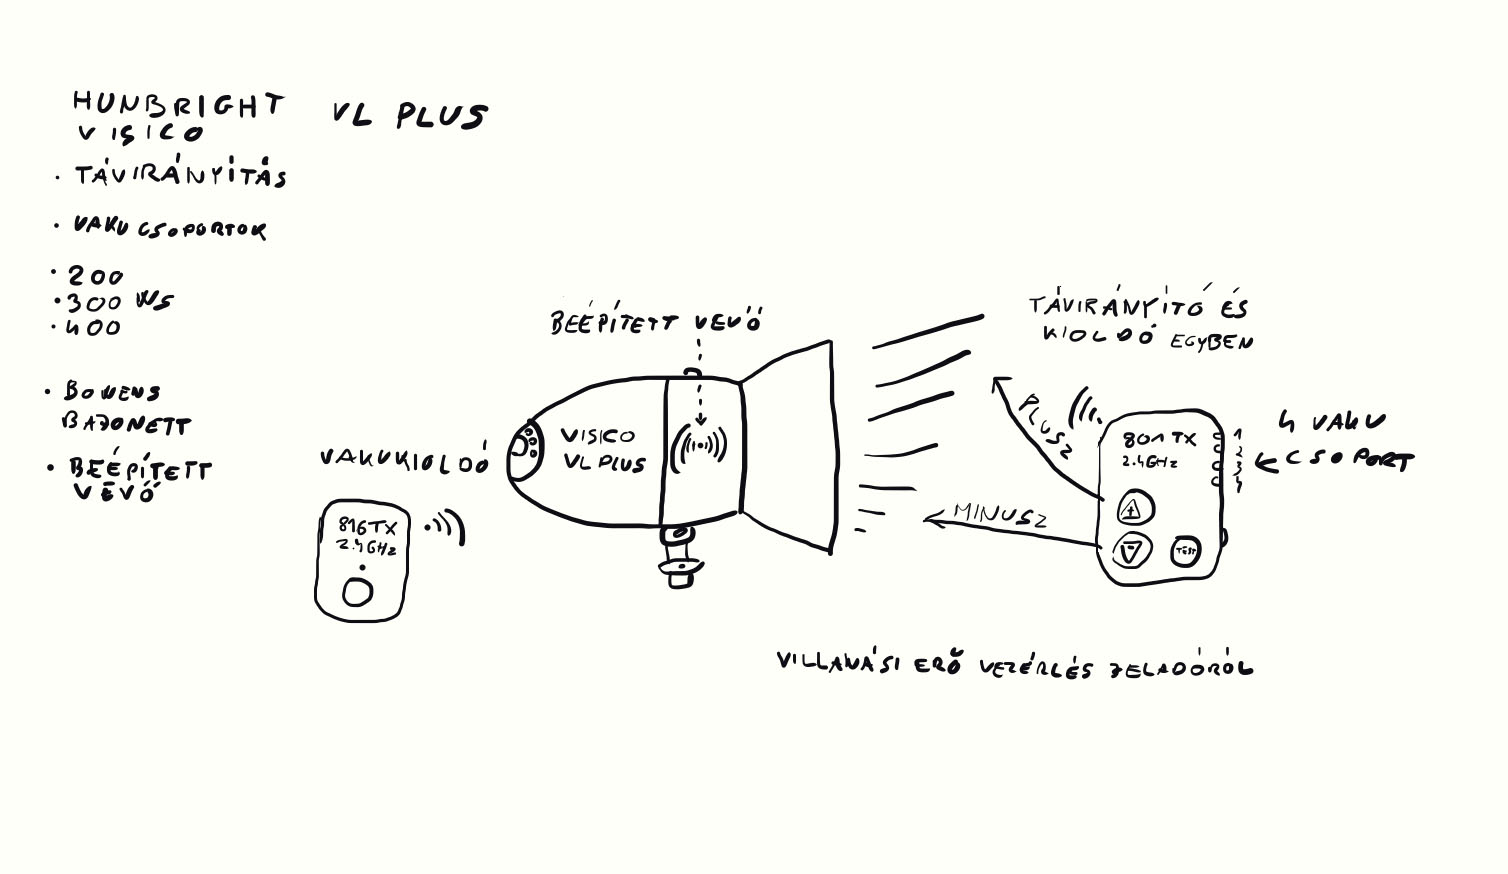 HUNBRIGHT
VISICO
VL PLUS
• TÁVIRÁNYÍTÁS
• VAKU CSOPORTOK
• 200
• 300 WS
• 400
• BOWENS
BAJONETT
• BEÉPÍTETT
VEVŐ
VAKUKIOLDÓ
816 TX
2.4GHz
BEÉPÍTETT VEVŐ
VISICO
VL PLUS
TÁVIRÁNYÍTÓ ÉS
KIOLDÓ EGYBEN
PLUSZ
MINUSZ
801 TX
2.4GHz
TEST
1
2
3
4
4 VAKU
CSOPORT
VILLANÁSI ERŐ VEZÉRLÉS JELADÓRÓL